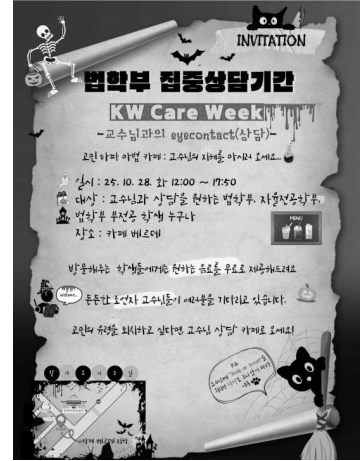 INVITATION
법학부 집중상담기간
KW Care Week
-교수님과의 eyecontact(상담)-
고민 타파 마법 카페 : 교수님의 지혜를 마시러 오세요..
일시 : 25. 10. 28. 화 12:00 ~ 17:50
대상 : 교수님과 상담을 원하는 법학부, 자율전공학부,
법학부 부전공 학생 누구나
장소 : 카페 베르데
MENU
방문해주는 학생들에게는 원하는 음료를 무료로 제공해드려요
welcome...
든든한 조언자 교수님들이 여러분을 기다리고 있습니다.
고민의 유령을 퇴치하고 싶다면 교수님 상담 카페로 오세요!
P.S.
교수님께 "trick or treat"을